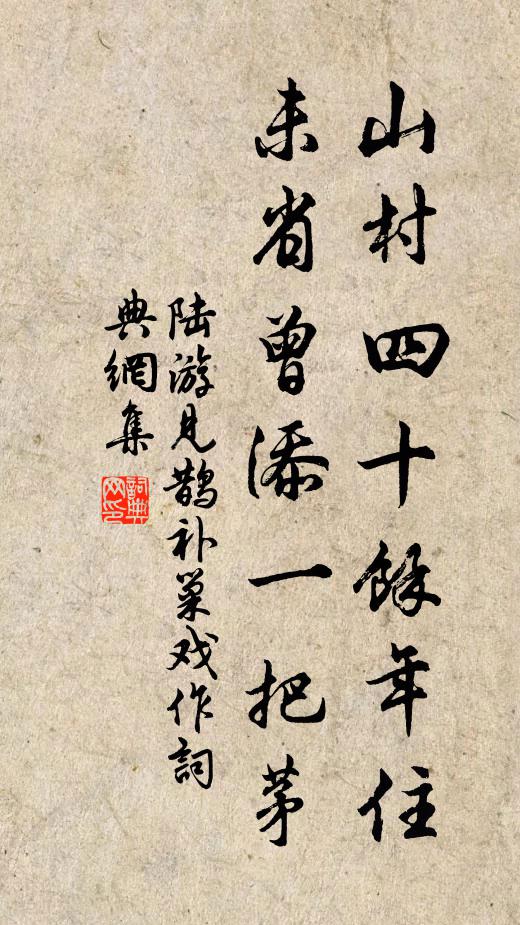 山村四十餘年住
未省曾添一把茅
陆游见鹊补巢戏作詞
典網集
詞典
网印